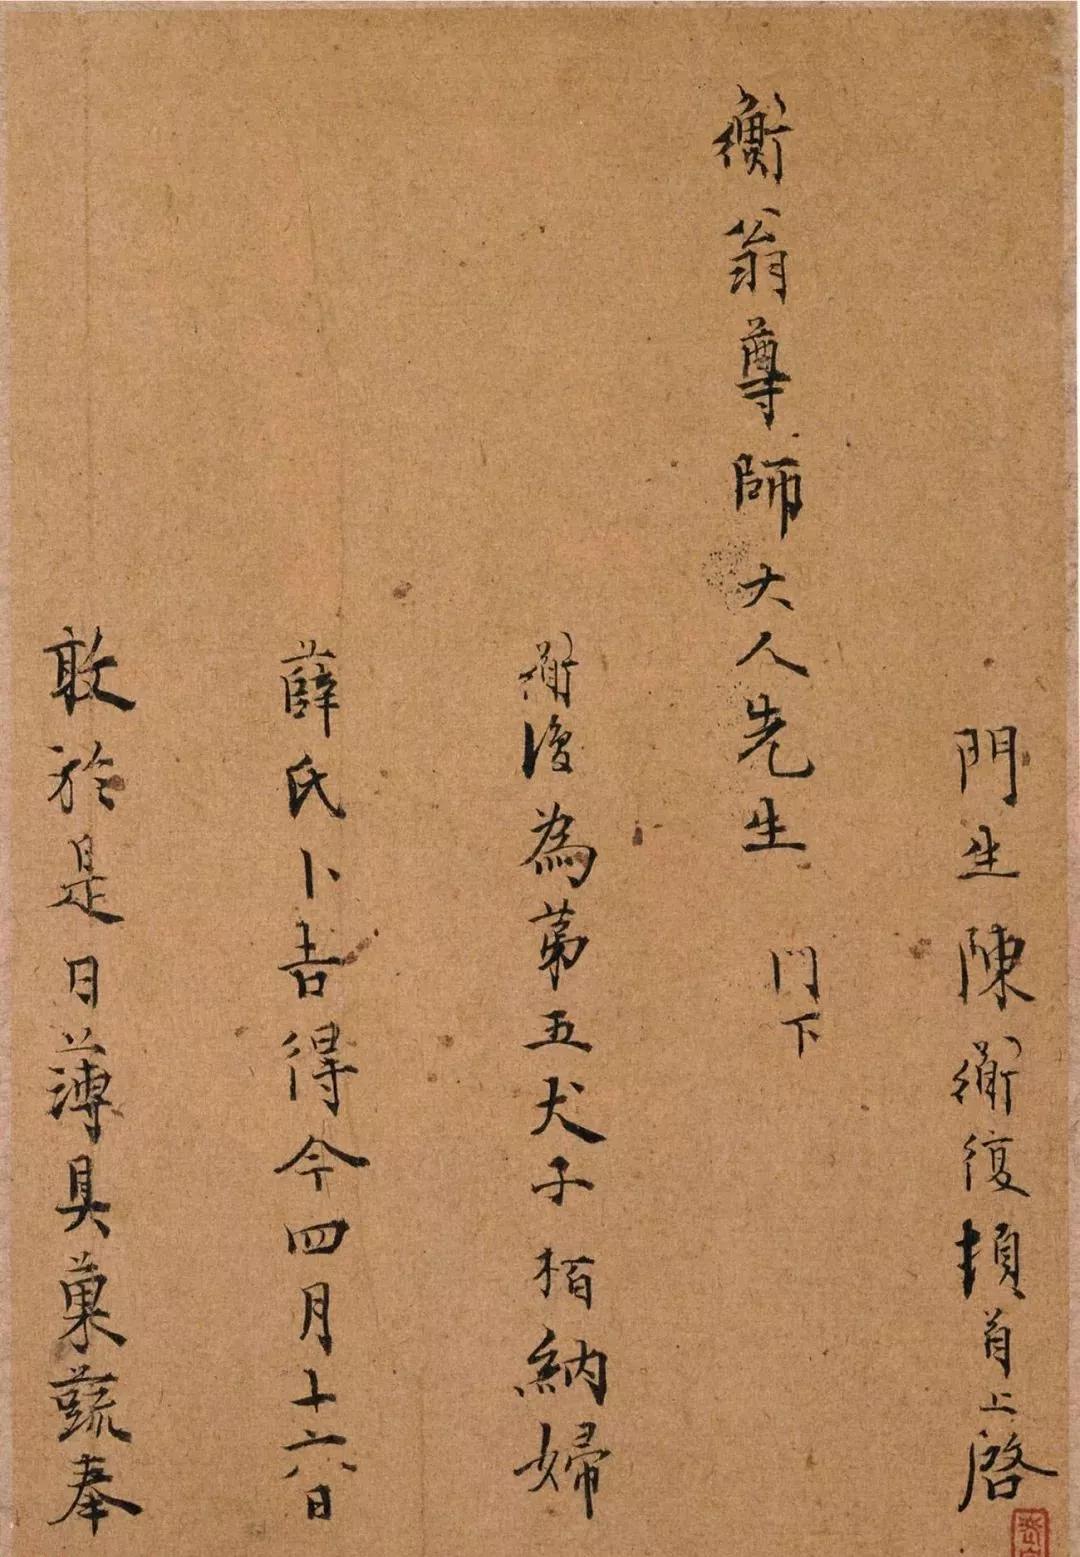 門生陳衜復頓首上啓
衡翁尊師大人先生 門下
衜復為第五犬子栢納婦
薛氏卜吉得今四月十六日
敢於是日薄具菓蔬奉